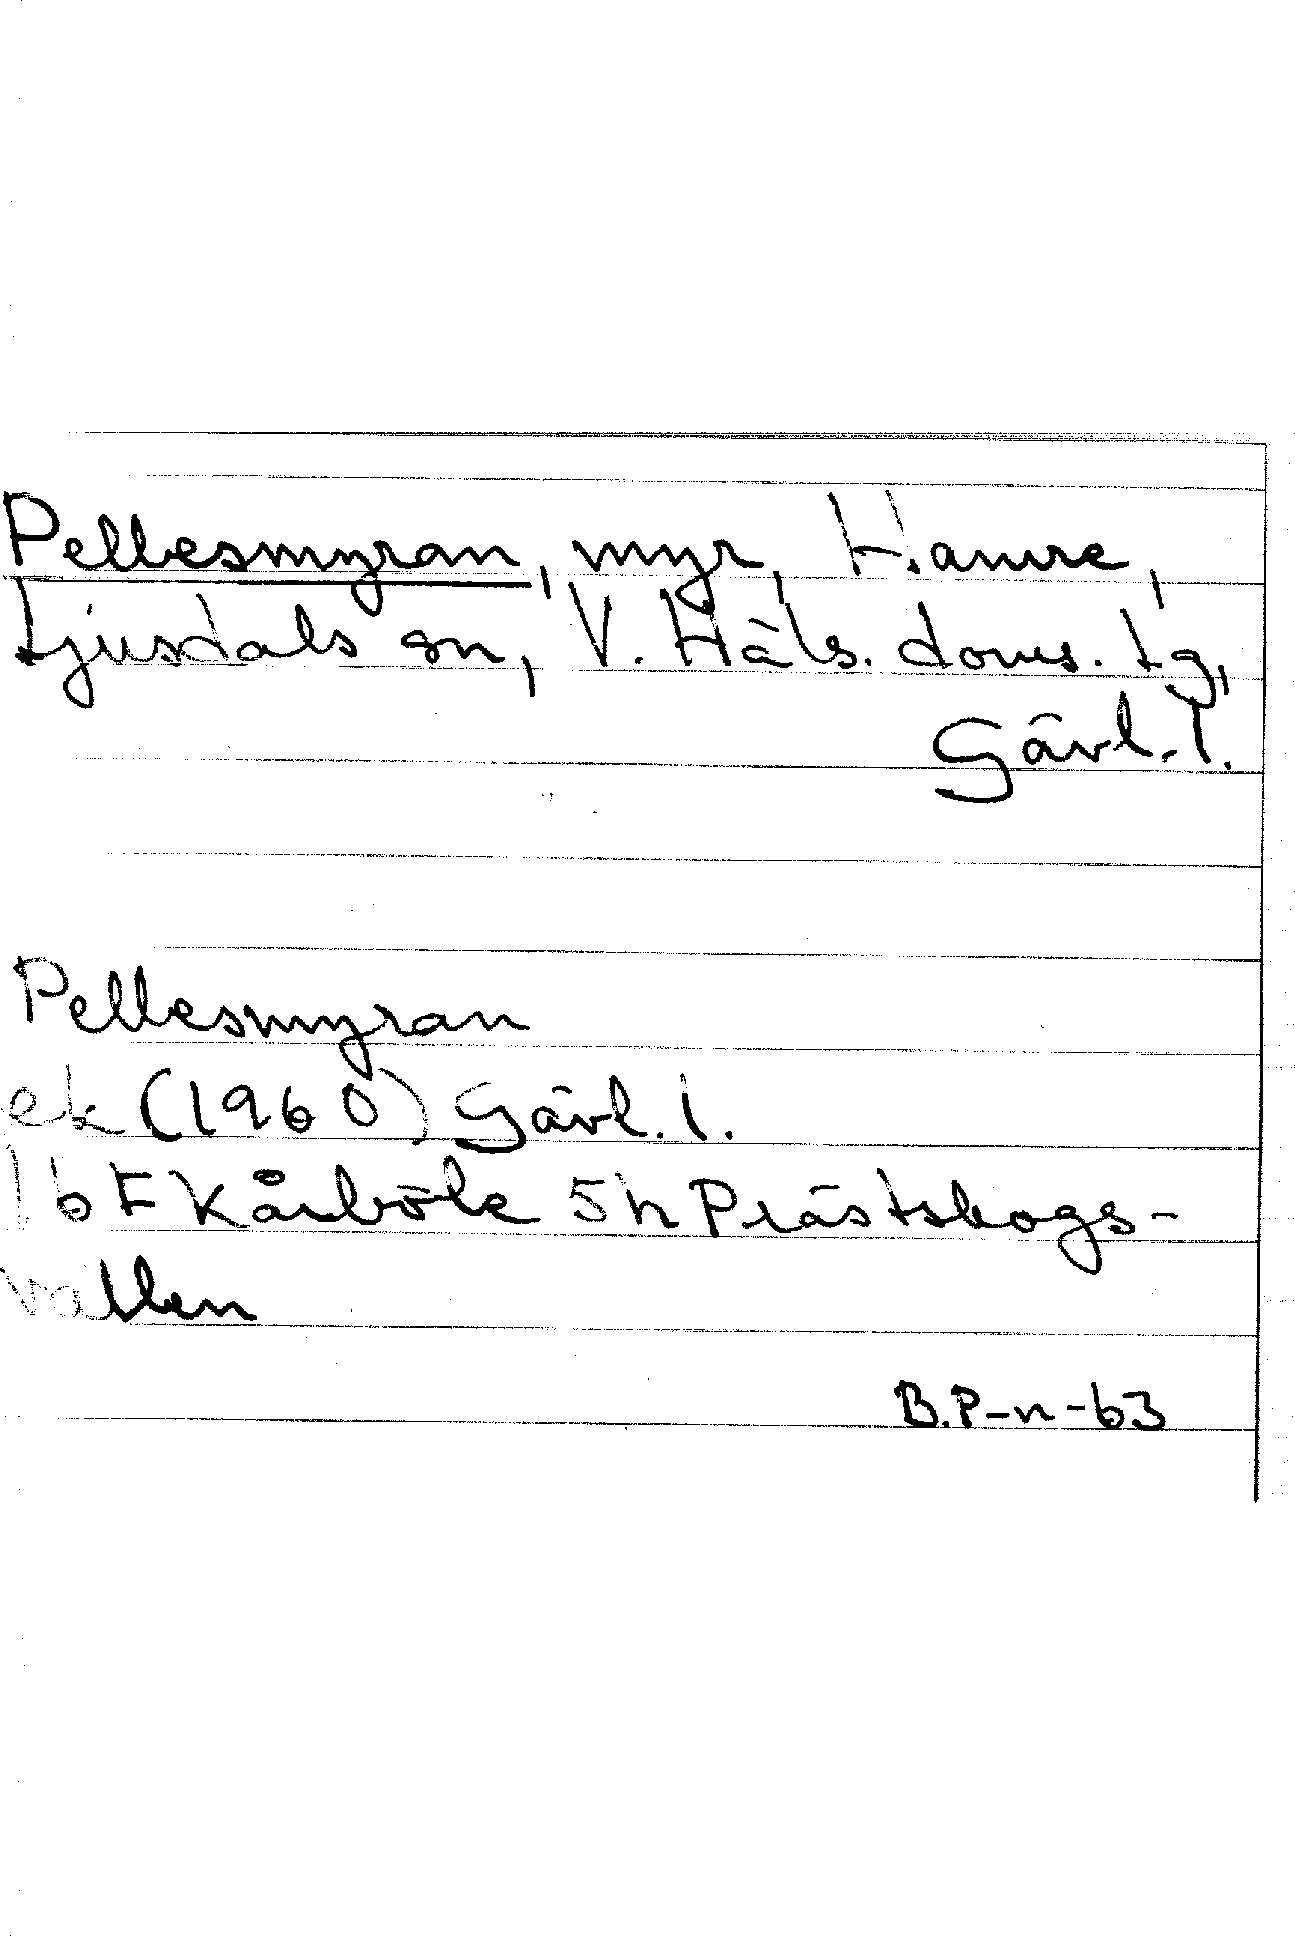 Pellesmyran, myr, Hamre,
Ljusdals sn, V. Häls. doms. tg,
Gävl. l.
Pellesmyran
ek (1960) Gävl. l.
16 F Kårböle 5h Prästskogs-
vallen
B.P-n-63